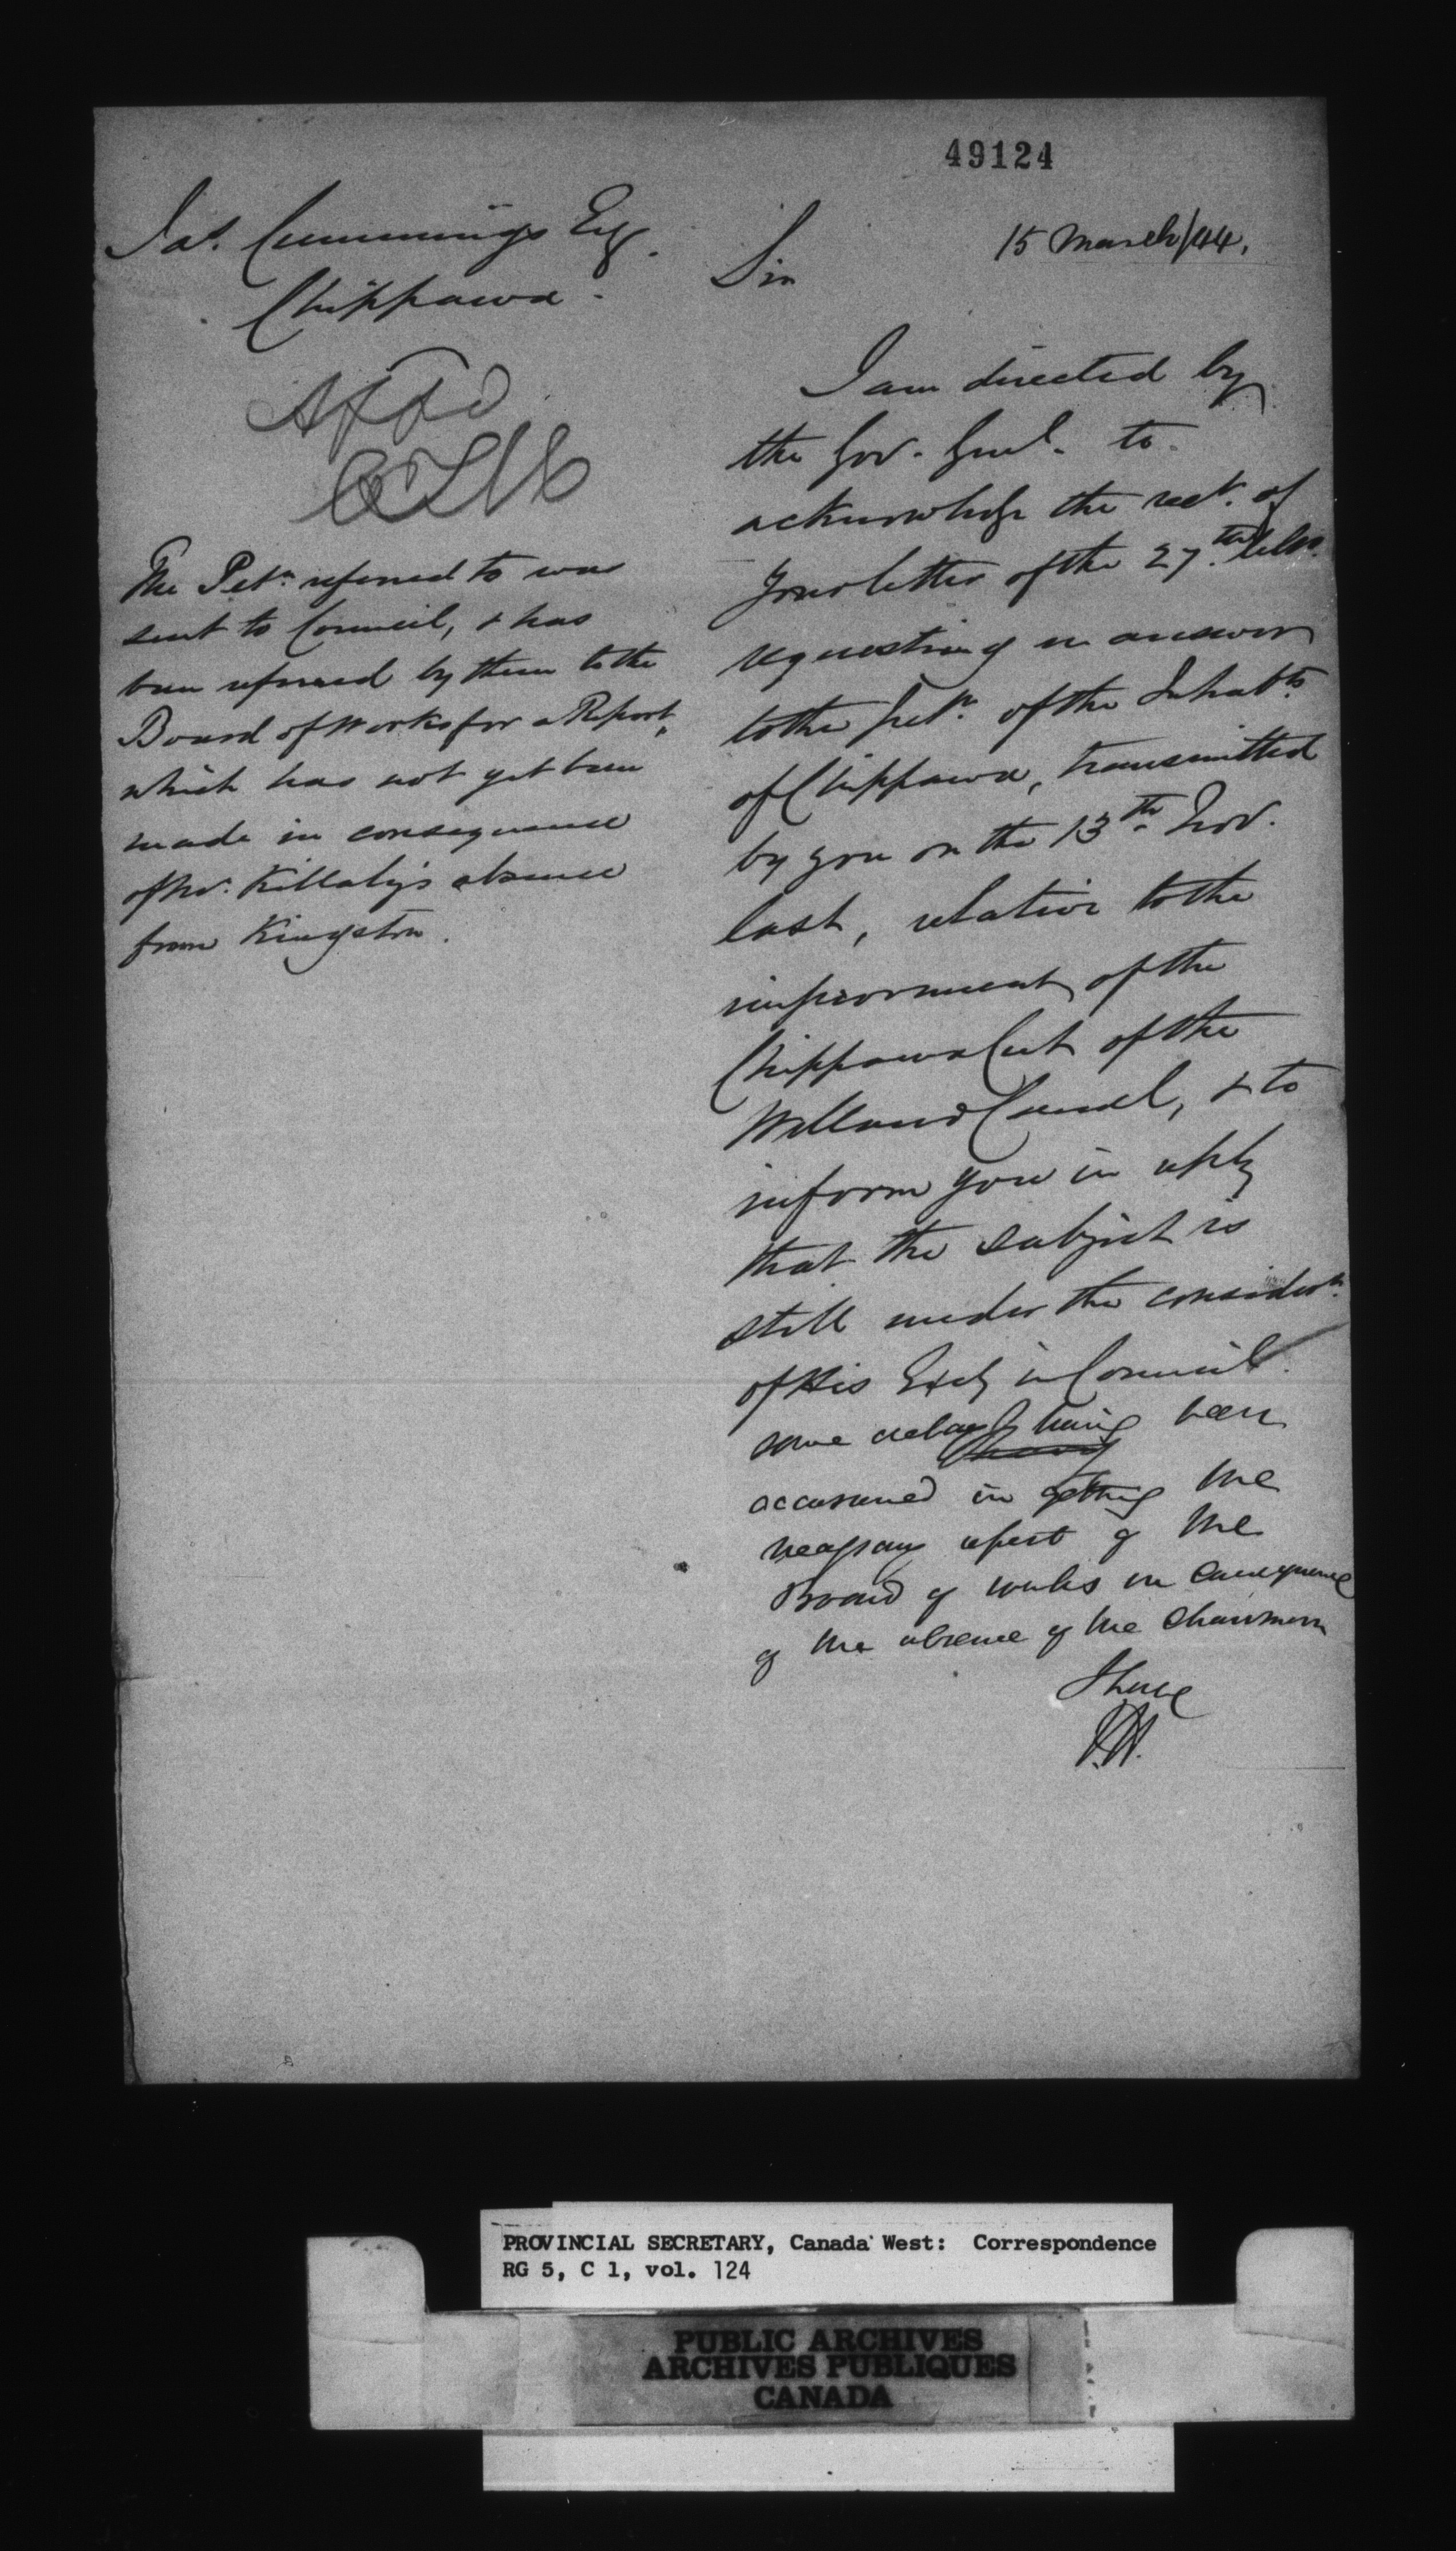 49124
Jas. Cummings Esq.
Chippawa.
15 March/44.
Sir
Appd
The Petn. referred to was
sent to Council, & has
been referred by them to the
Board of Works for a Report,
which has not yet been
made in consequence
of Mr. Killaly's absence
from Kingston.
I am directed by
the Gov. Genl. to
acknowledge the rect. of
your letter of the 27th. ulto.
requesting an answer
to the Petn. of the Inhabts.
of Chippawa, transmitted
by you on the 13th Nov.
last, relative to the
improvement of the
Chippawa Cut of the
Welland Canal, & to
inform you in reply
that the subject is
still under the considern.
of His Excy in Council.
some delay having been
occasioned in getting the
necessary report of the
Board of Works in consequence
of the absence of the Chairman
I have
PROVINCIAL SECRETARY, Canada West: Correspondence
RG 5, C 1, vol. 124
PUBLIC ARCHIVES
ARCHIVES PUBLIQUES
CANADA